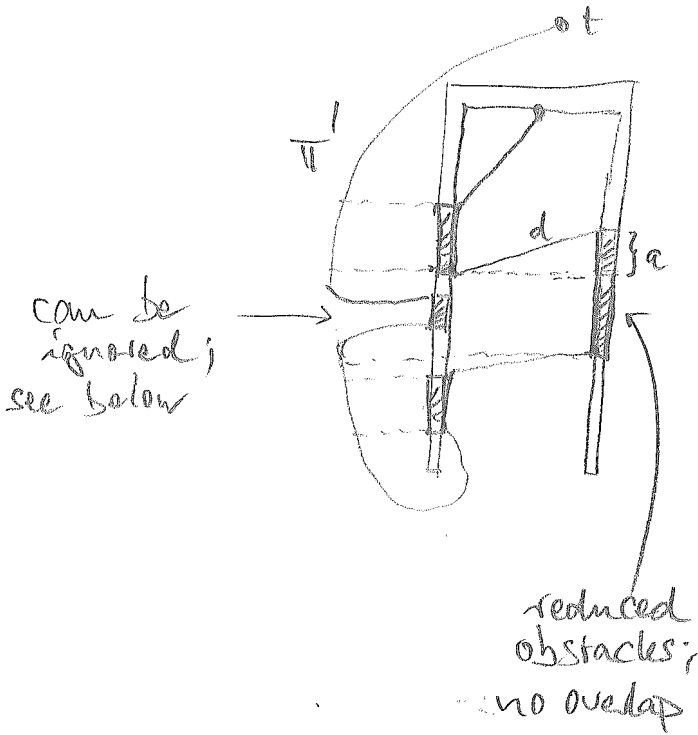 t
π'
d
} a
can be
ignored;
see below
reduced
obstacles;
no overlap